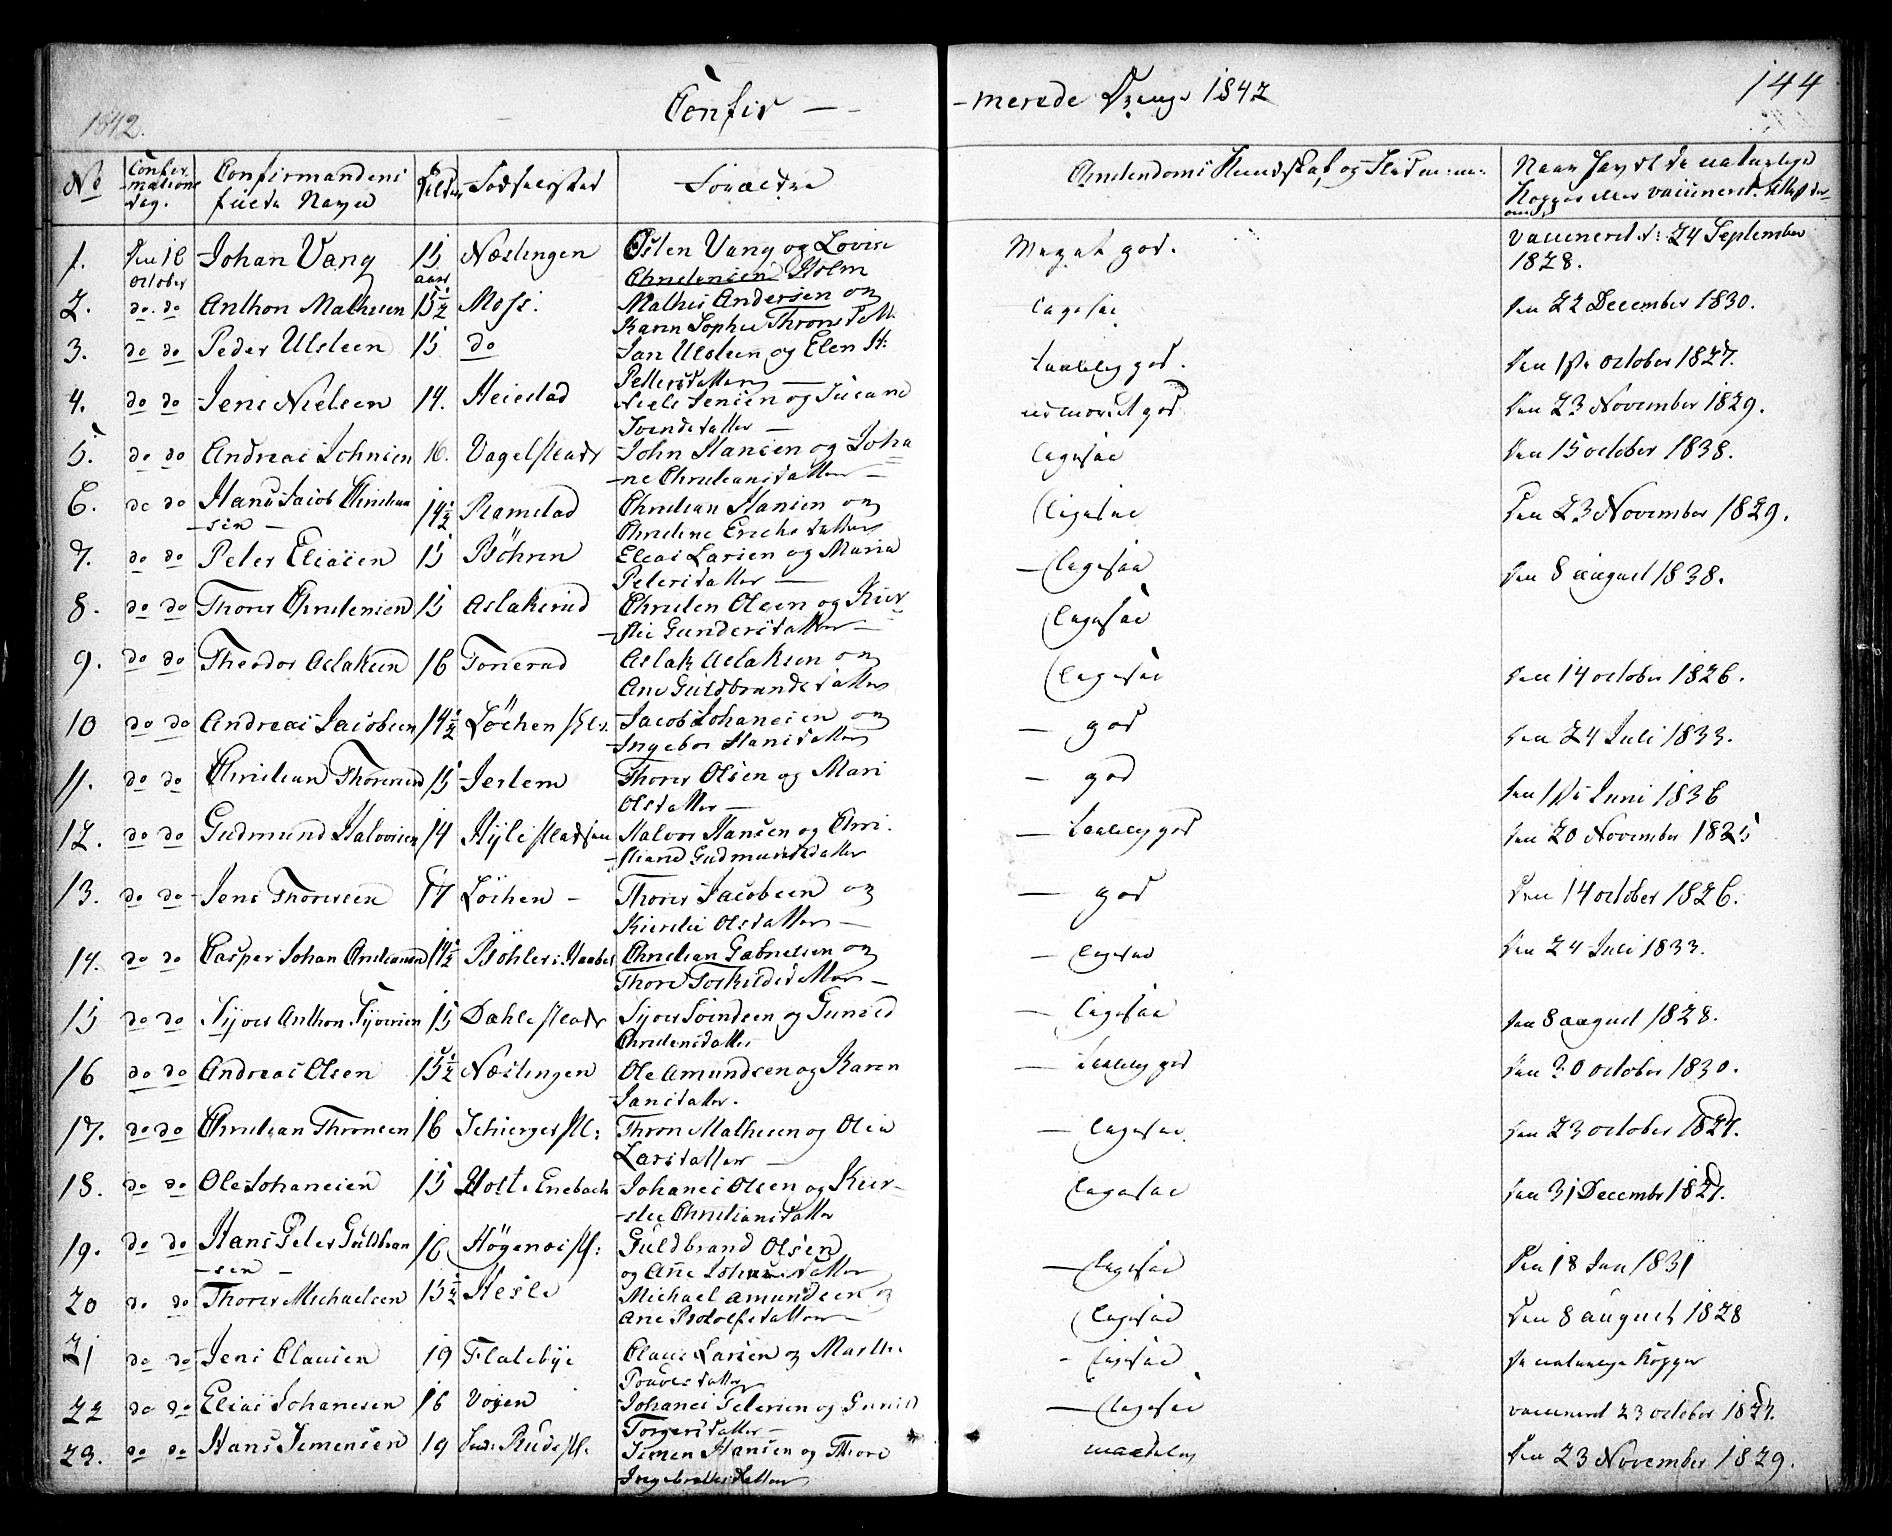 Confir — - -merede Drenge 1842
144
1842.
No
Confir
-mations
dag.
Confirmandens
fulde Navn
Alder
Fødselssted
Forældre
Christendoms Kundskab og
Naar havdt de naturlige
Kopper eller vaccineret
1. Den 16 October Johan Vang 15 aar Næslingen Osten Vang og Lovise
Christensen Holm Meget god. vaccineret d: 24 September
1828.
2. do. do Anthon Mathisen 15 1/2 Moss: Mathis Andersen og
Karin Sophie Thronsdatt: Ligesaa den 22 December 1830.
3. do do Peder Ulsteen 15 do Jan Ulsteen og Elen H:
Pettersdatter — taalelig god. den 1ste october 1827.
4. do do Jens Nielsen 14. Heiestad Niels Jensen og Susane
Svendsdatter — udmærket god den 23 November 1829.
5. do do Andreas Johnsen 16. Vagelsteadr John Hansen og Joha
-ne Christiansdatter — ligesaa den 15 october 1838.
6. do do Hans Jacob Christian
-sen — 14 1/2 Ramstad Christian Hansen og
Christine Erichsdatter ligesaa den 23 November 1829.
7. do do Peter Eliasen 15 Böhren Elias Larsen og Maria
Petersdatter — — ligesaa den 8 august 1838.
8. do do Thorer Christensen 15 Aslakerud Christen Olsen og Kier-
-stie Gundersdatter — ligesaa
9. do do Theodor Aslaksen 16 Tonerud Aslak Aslaksen og
Ane Guldbrandsdatter ligesaa den 14 october 1826.
10 do do Andreas Jacobsen 14 1/2 Löchen Jacob Johanesen og
Ingebor Hansdatter — god den 24 Juli 1833.
11. do do Christian Thoresen 15 Jerlem Thorer Olsen og Mari
Olsdatter — — god den 1ste Juni 1836
12. do do Gudmund Halvorsen 14 Halvor Hansen og Chri-
-stiane Gudmundsdatter — taalelig god den 20 November 1825
13. do do Jens Thoresen 17 Löchen - Thorer Jacobsen og
Kierstie Olsdatter — — god Den 14 october 1826.
14. do do Casper Johan Christiansen 14 1/2 Christian Gabrielsen og
Thore Torkildsdatter — - ligesaa den 24 Juli 1833.
15 do do Syver Anthon Syversen 15 Dahlesteadr Syver Svindsen og Gunild
Christensdatter — ligesaa den 8 august 1828.
16 do do Andreas Olsen 15 1/2 Næslingen Ole Amundsen og Karen
Jansdatter. — taalelig god den 30 october 1830.
17. do do Christian Thronsen 16 Thron Mathisen og Olea
Larsdatter — — ligesaa den 23 october 1827.
18. do do Ole Johanesen 15 Holt i Enebach Johanes Olsen og Kier-
-stie Christiansdatter ligesaa den 31 Decembr 1827.
19. do do Hans Peter Guldbran
-sen — 16 Guldbrand Olsen
og Ane Johansdatter — ligesaa Den 18 Jan 1831
20 do do Thorer Michaelsen 15 1/2 Hesle Michael Amundsen og
Ane Rolofsdatter — ligesaa Den 8 august 1828
21 do do Jens Clausen 19 Flatebye Claus Larsen og Marthe
Povelsdatter - ligesaa De naturlige Kopper
22 do do Elias Johanesen 16 Vøyen Johanes Petersen og Gunild
Torgersdatter — — ligesaa vaccineret 23 october 1827.
23. do do Hans Simensen 19 Simen Hansen og Thore
Ingebretsdatter maadelig Den 23 November 1829.